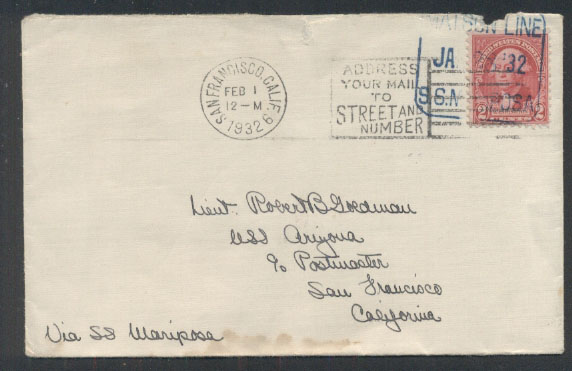 MATSON LINE
JA 32
S.S.M POSA
UNITED STATES POSTAGE
2 2
SAN FRANCISCO, CALIF.
FEB 1
12-M
1932
6
ADDRESS
YOUR MAIL
TO
STREET AND
NUMBER
Lieut. Robert B Goldman
USS Arizona
℅ Postmaster
San Francisco
California
Via SS Mariposa